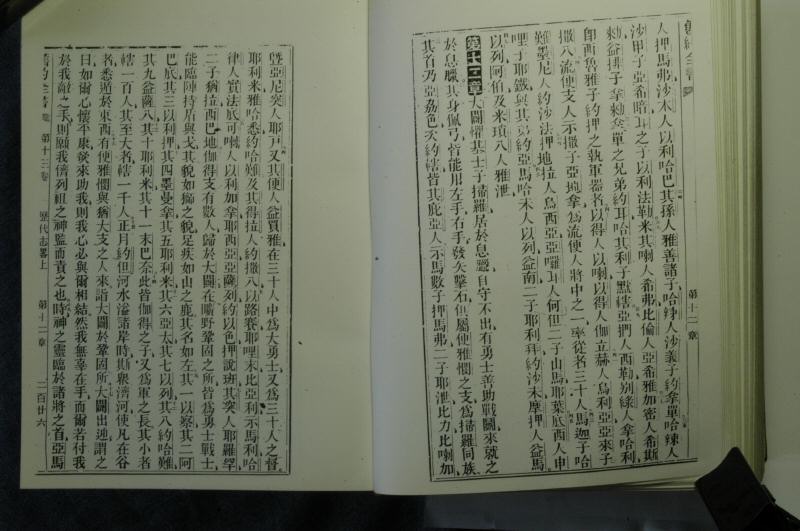 舊約全書
第十二章
人押馬弗沙木人以利哈巴其孫人雅善諸子哈辣人沙義子約拿單哈辣人
沙甲子亞希暗耳之子以法勒米其喇人希弗比倫人亞希雅加密人希斯
勑益排子拿勑㕘單之兄弟約耳哈其利子默轄亞捫人西勒別綠人拿哈利
卽西魯雅子約押之執軍器者以得人以喇以得人伽立赫人烏利亞亞來子
撒八流便支人示撒子亞坭拿爲流便人將中之一率從者三十人馬迦子哈
難墨尼人約沙法押地拉人烏西亞亞囉耳人何但二子山馬耶葉底西人申
哩子耶鐵與其弟約亞馬哈末人以列益南二子耶利拜約沙未摩押人益馬
以列阿伯及米瑣八人雅泄
第十二章 大闢懼其士子掃羅居於息遷自守不出有勇士善助戰鬬來就之
於息臘其身佩弓皆能用左手右手發矢擊石但屬便雅憫之支爲掃羅同族
其首乃亞荔色次約轄皆其庇亞人示馬數子押馬弗二子耶泄比力比喇加
曁亞尼突人耶戸又其便人益買雅在三十人中爲大勇士又爲三十人之督
耶利米雅哈悉約哈難及其得拉人約撒八以路賽耶哩末比亞利示馬利哈
律人實法底可嘁人以利加拿耶西亞亞薩列約以色押說班其突人耶羅罕
二子猶拉西巴地伽得支有數人歸於大闢在曠野鞏固之所皆爲勇士戰士
能臨陣持盾與戈其貌如獅之貌足疾如山之鹿其名如左其一以察其二阿
巴底其三以利押其四墨曼拿其五耶利米其六亞太其七以列其八約哈難
其九益薩八其十耶利米其十一末巴奈此皆伽得之子又爲軍之長其小者
轄一百人其至大者轄一千人正月約但河水溢諸岸時斯衆濟河使凡在谷
者悉遁於東西有便雅憫與猶大支之人來詣大闢於鞏固所大闢出迎謂之
曰如爾心懷平康㷩來助我則我心必與爾相結然我無辜在手而爾若付我
於我敵之手則願我儕列祖之神監而責之也時神之靈臨於諸將之首亞馬
第十三卷
歷代志畧上
第十二章
二百廿六